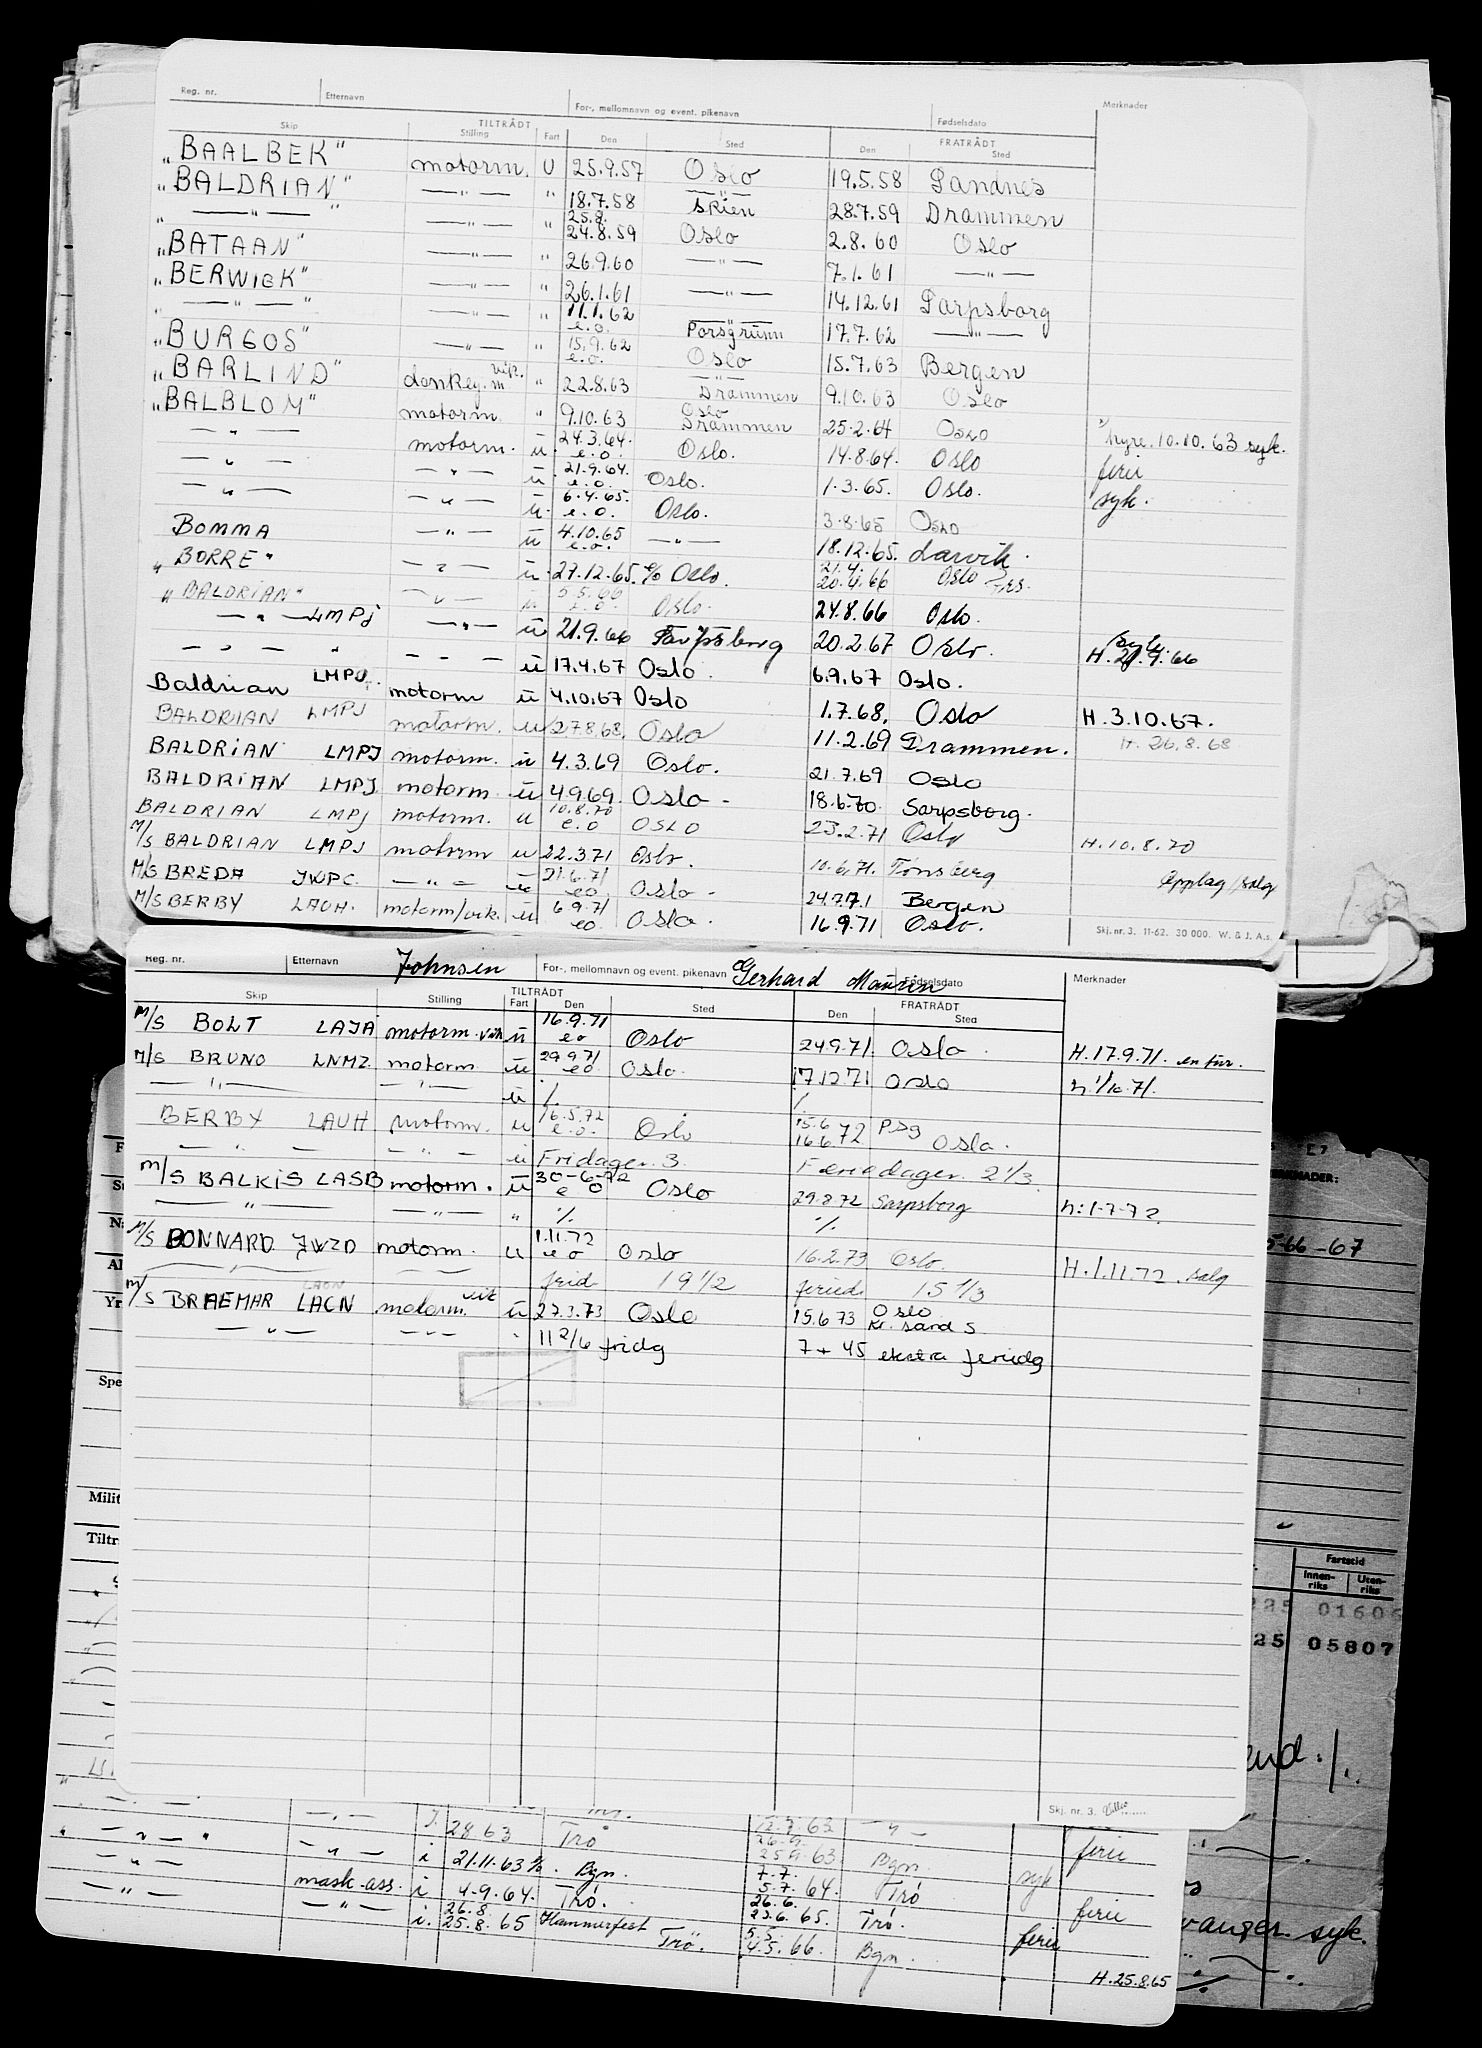 Reg. nr. Etternavn For-, mellomnavn og event. pikenavn Fødselsdato Merknader
Skip TILTRÅDT Stilling Fart Den Sted FRATRÅDT Den Sted
"BAALBEK" motorm. U 25.9.57 Oslo 19.5.58 Sandnes
"BALDRIAN" —"— " 18.7.58 Skien 28.7.59 Drammen
" —"— " —"— " 25.8. 24.8.59 Oslo 2.8.60 Oslo
"BATAAN" —"— " 26.9.60 —"— 7.1.61 —"—
"BERWICK" —"— " 26.1.61 —"— 14.12.61 Sarpsborg
" —"— " —"— " 11.1.62 e.o. Porsgrunn 17.7.62 —"—
"BURGOS" —"— " 15.9.62 e.o. Oslo 15.7.63 Bergen
"BARLIND" donkeym. vik. " 22.8.63 Drammen 9.10.63 Oslo
"BALBLOM" motorm. " 9.10.63 Oslo Drammen 25.2.64 Oslo hyre. 10.10.63 syk.
—"— motorm. u. 24.3.64. e.o. Oslo. 14.8.64. Oslo ferie
—"— —"— u. 21.9.64. e.o. Oslo. 1.3.65. Oslo. syk.
—"— —"— u. 6.4.65. e.o. Oslo. 3.8.65 Oslo
BOMMA —"— u 4.10.65 e.o. —"— 18.12.65. Larvik.
"BORRE" —"— u. 27.12.65. e/o Oslo. 21.4. 20.4.66 Oslo
"BALDRIAN" —"— u 5.5.66 e.o. Oslo. 24.8.66 Oslo.
—"— LMPJ —"— u 21.9.66 Sarpsborg 20.2.67 Oslo. H. 21.9.66
—"— " —"— u 17.4.67 Oslo. 6.9.67 Oslo.
Baldrian LMPJ. motorm u 4.10.67 Oslo 1.7.68. Oslo H. 3.10.67.
BALDRIAN LMPJ motorm. u 27.8.68. Oslo 11.2.69 Drammen. H. 26.8.68
BALDRIAN LMPJ motorm. u 4.3.69 Oslo. 21.7.69 Oslo
BALDRIAN LMPJ. motorm u 4.9.69. Oslo - 18.6.70. Sarpsborg.
BALDRIAN LMPJ motorm. u 10.8.70 e.o OSLO 23.2.71 Oslo H. 10.8.70
M/S BALDRIAN LMPJ motorm u 22.3.71 Oslo. 10.6.71. Tønsberg Opplag/salg
M/S BREDA JWPC. —"— u 21.6.71 eo Oslo - 24.7.71 Bergen
M/S BERBY LAUH. motorm/vik. u 6.9.71 eo. Oslo. 16.9.71 Oslo.
Skj. nr. 3. 11-62. 30 000. W. & J. A.s.
Reg. nr. Etternavn Johnsen For-, mellomnavn og event. pikenavn Gerhard Mausen Fødselsdato Merknader
Skip TILTRÅDT Stilling Fart Den Sted FRATRÅDT Den Sted
M/S BOLT LAJA motorm. vik u 16.9.71 eo Oslo 24.9.71. Oslo. H. 17.9.71. en tur.
M/S BRUNO LNMZ. motorm u 29.9.71 eo. Oslo. 17.12.71 Oslo h. 1/10.71.
—"— —"— u ./. ./.
BERBY LAUH motorm. u 16.5.72 e.o. Oslo 15.6 16.6.72 P.sg Oslo.
—"— —"— u Fridager. 3. Feriedager. 2 1/3.
M/S BALKIS LASB motorm. u 30-6-72 e o Oslo 29.8.72 Sarpsborg h: 1-7-72.
—"— —"— " ./. ./.
M/S BONNARD JWZD motorm. u 1.11.72 eo Oslo 16.2.73 Oslo. H. 1.11.72. salg
frid. 19 1/2 feried. 15 1/3
M/S BRAEMAR LACN LACN motorm. vik u 27.3.73 Oslo 15.6.73 Oslo Kr. sand S.
—"— —"— " 11 2/6 fridg 7 + 45 ekstra feriedg
Skj. nr. 3.
MERKNADER:
5-66-67
Spe
Milit
Tiltr
Fartstid
Innen-riks Uten-riks
225 01605
25 05807
end. /.
J. 28 63 Trø 12.7.63 —"—
—"— —"— i 21.11.63 % Bgn. 26.9. 25.9.63. Bgn ferie
—"— mask.ass. i 4.9.64. Trø. 7.7. 5.7.64. Trø syk
—"— —"— i. 26.8. 25.8.65 Hammerfest 26.6. 23.6.65. Trø. ferie
Trø. 5.5. 4.5.66. Bgn. ferie
H. 25.8.65
vanger. syk.